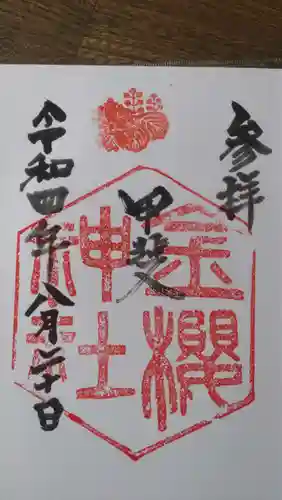 参拝
甲斐
金櫻
神社
令和四年八月二十日